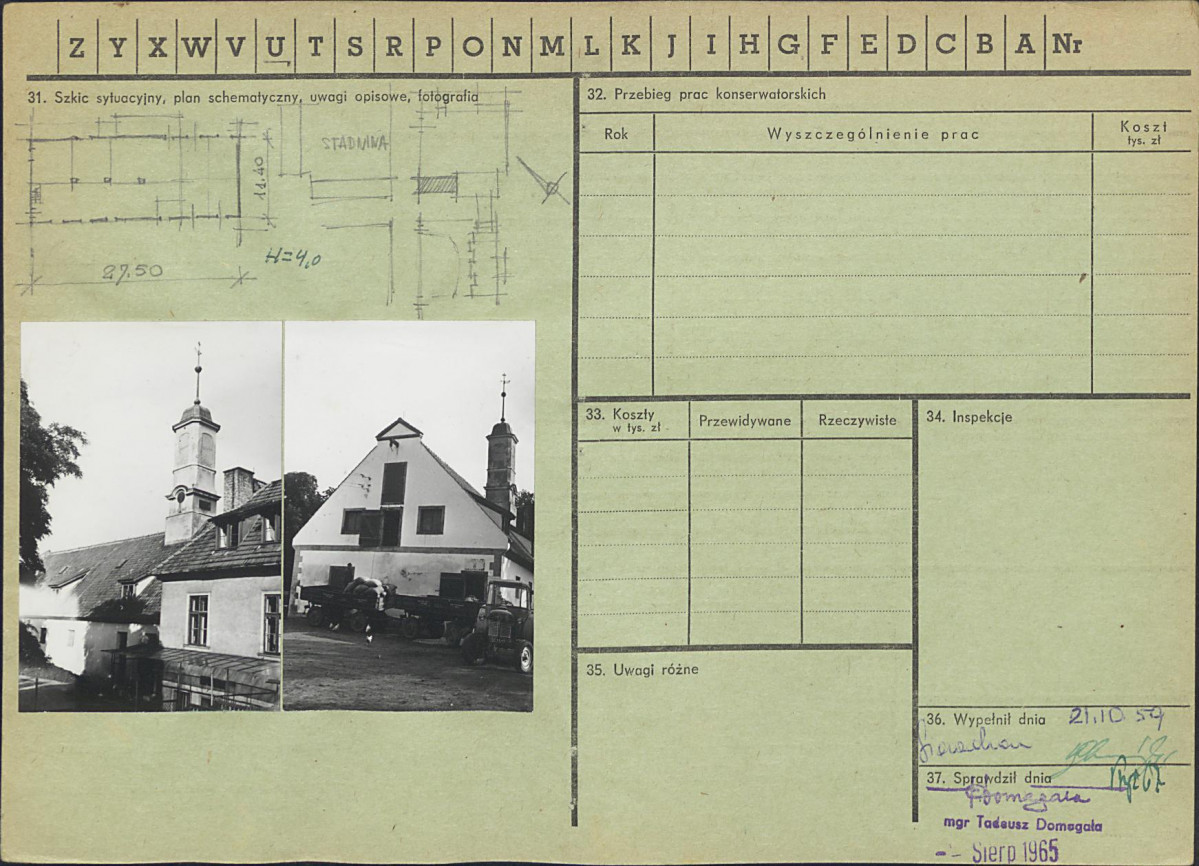 Z Y X W V U T S R P O N M L K J I H G F E D C B A Nr
31. Szkic sytuacyjny, plan schematyczny, uwagi opisowe, fotografia
STADNINA
11.40
27.50
H=4,0
32. Przebieg prac konserwatorskich
Rok
Wyszczególnienie prac
Koszt
tys. zł
33. Koszty
w tys. zł
Przewidywane
Rzeczywiste
34. Inspekcje
35. Uwagi różne
36. Wypełnił dnia 21.10.59
37. Sprawdził dnia
TDomagała
mgr Tadeusz Domagała
-- Sierp 1965